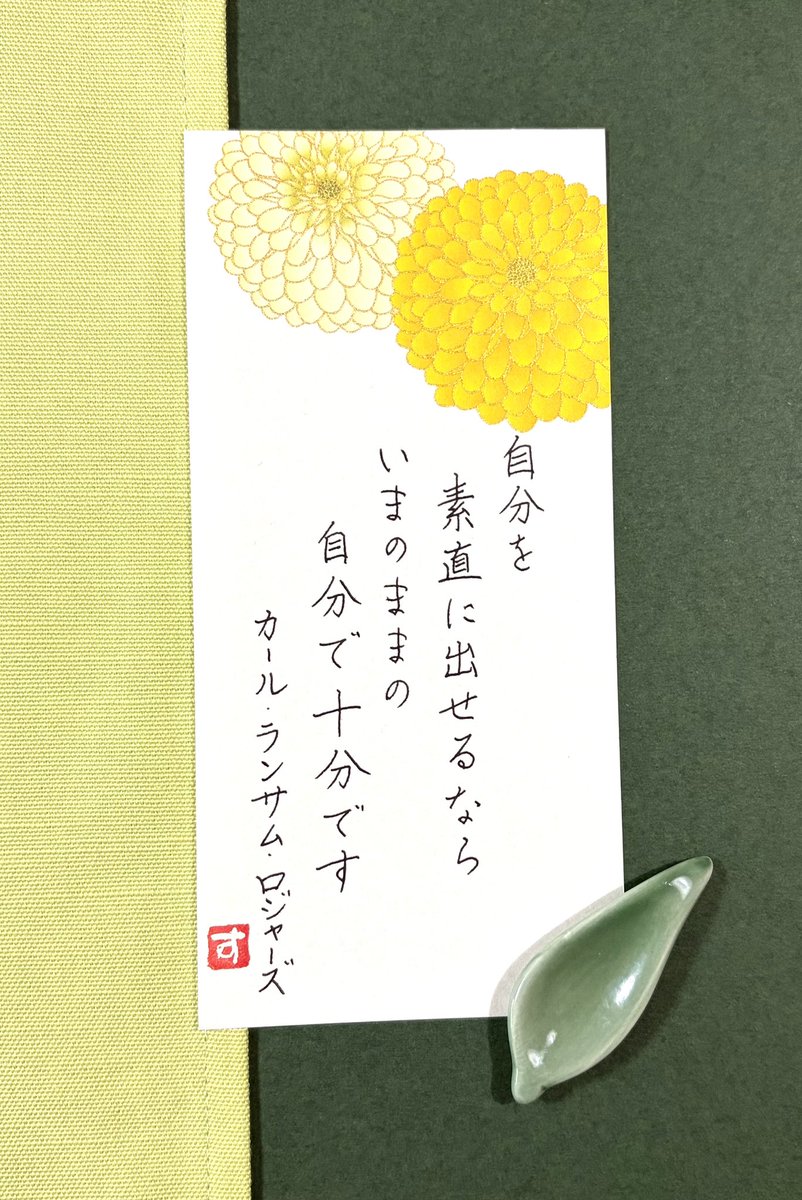 自分を
素直に出せるなら
いまのままの
自分で十分です
カール・ランサム・ロジャーズ
す